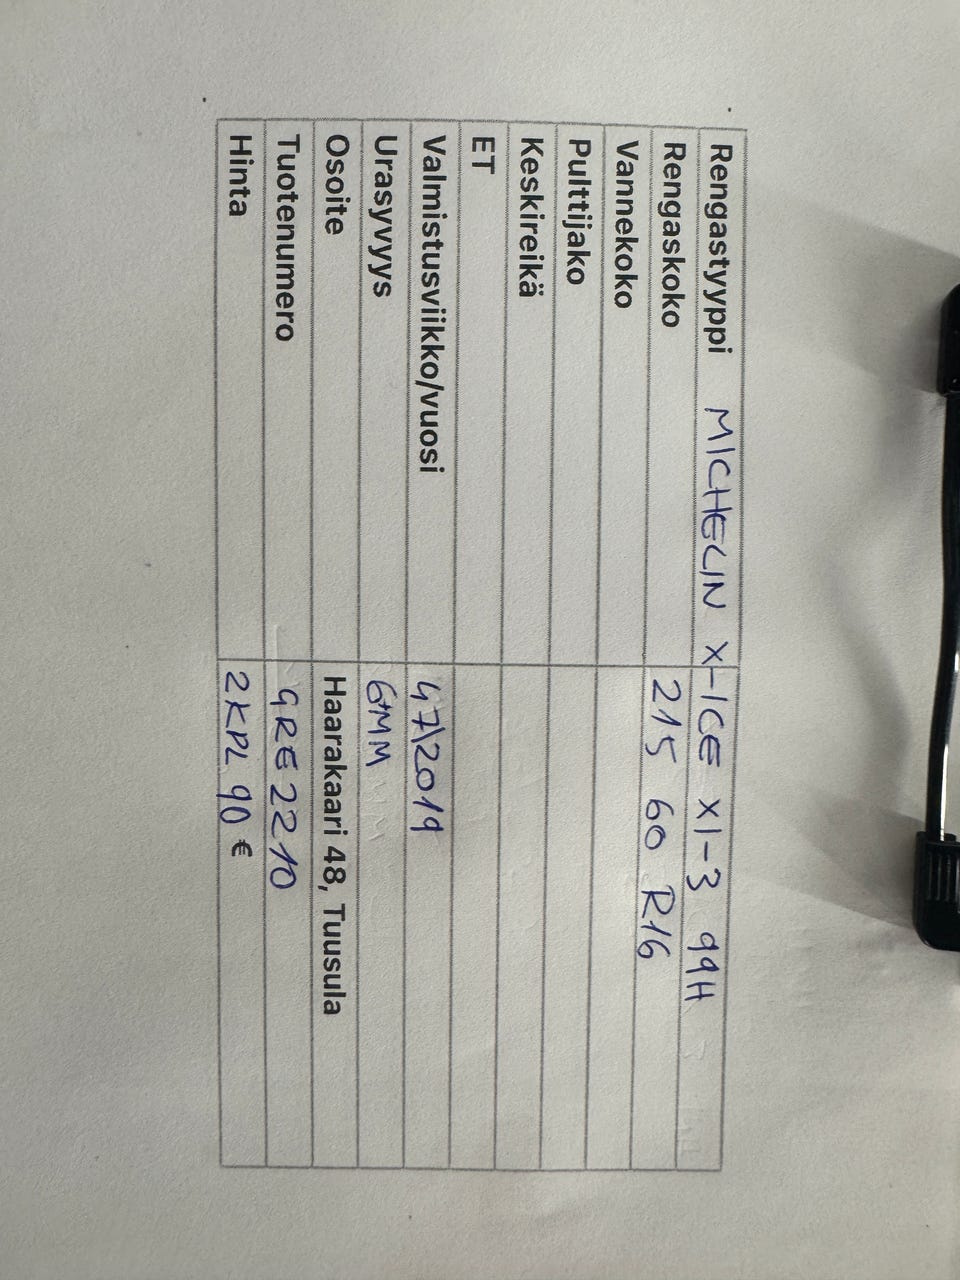 Rengastyyppi MICHELIN X-ICE XI-3 99H
Rengaskoko 215 60 R16
Vannekoko
Pulttijako
Keskireikä
ET
Valmistusviikko/vuosi 47\2019
Urasyvyys 6MM
Osoite Haarakaari 48, Tuusula
Tuotenumero GRE2210
Hinta 2KPL 90 €